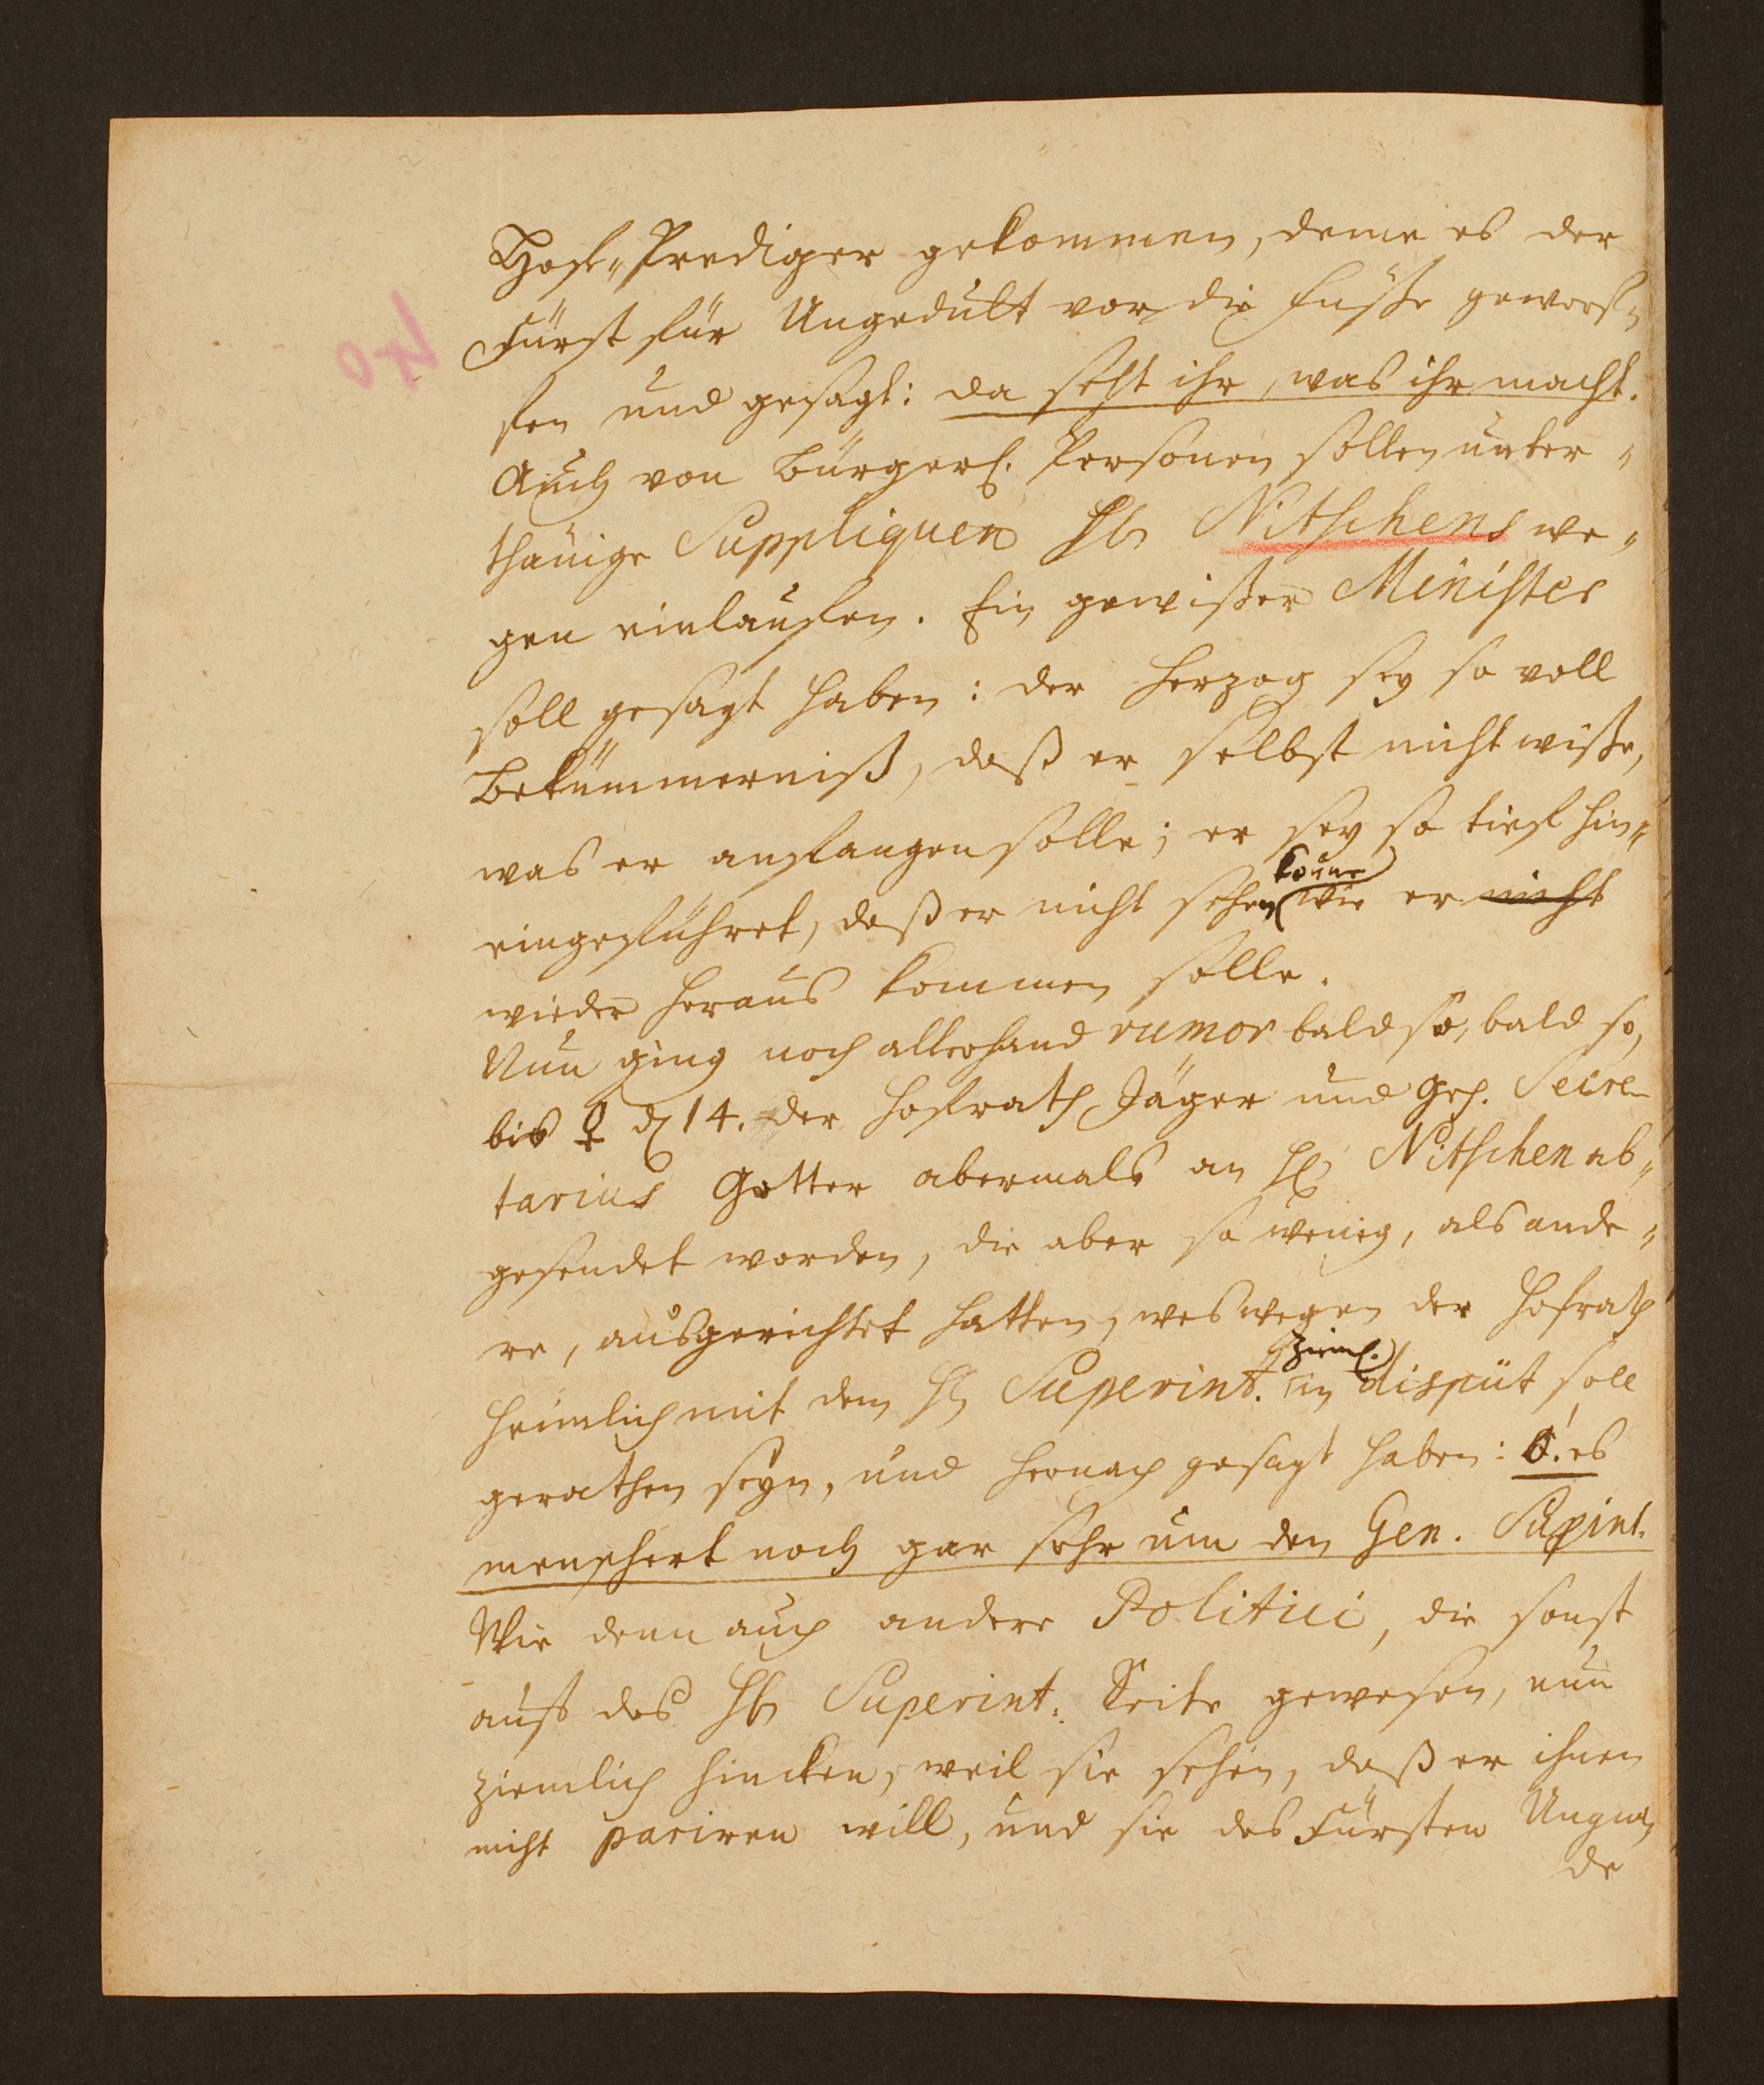 Hoff-Prediger gekommen, deme es der
Fürst für Ungedult vor die Füße geworf-
fen und gesagt: da seht ihr, was ihr macht.
Auch von Bürgerl. Personen sollen unter-
thänige Suppliquen Hh Nitschens we-
gen einlaufen. Ein gewißer Minister
soll gesagt haben: der Herzog sey so voll
Bekümmerniß, daß er selbst nicht wiße,
was er anfangen solle; er sey so tief hin-
eingeführet, daß er nicht sehen könne wie er nicht
wieder heraus kommen solle.
Nun ging noch allerhand rumor bald so, bald so,
bis ♀ d 14. der Hofrath Jäger und Geh. Secre-
tarius Gotter abermals an H Nitschen ab-
gesendet worden, die aber so wenig, als ande-
re, ausgerichtet hatten, weswegen der Hofrath
heimlich mit dem H Superint. ziml. in disput soll
gerathen seyn, und hernach gesagt haben: O! es
menschert noch gar sehr um den Gen. Supint.
Wie denn auch andere Politici, die sonst
auf des Hh Superint. Seite gewesen, nun
ziemlich hincken, weil sie sehen, daß er ihnen
nicht pariren will, und sie des Fürsten Ungna-
de
40